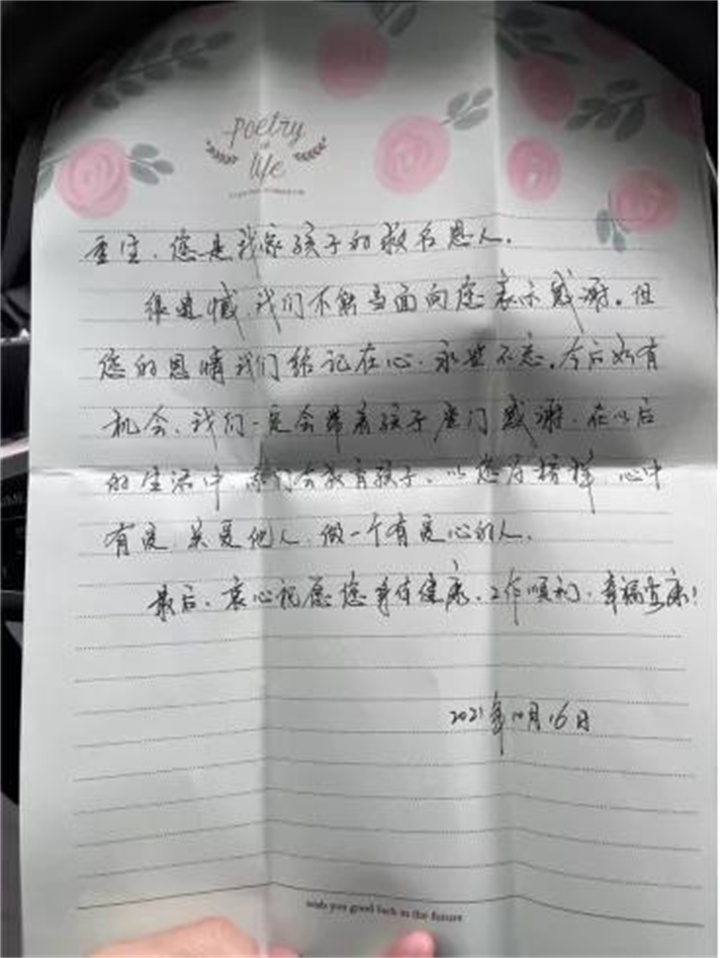 Poetry
of
life
重生，您是我家孩子的救命恩人。
很遗憾，我们不能当面向您表示感谢。但
您的恩情我们铭记在心，永世不忘。今后如有
机会，我们一定会带着孩子登门感谢，在以后
的生活中 我们会教育孩子，以您为榜样 心中
有爱，关爱他人，做一个有爱心的人。
最后，衷心祝愿您身体健康，工作顺利，幸福安康！
2021年10月16日
wish you good luck in the future